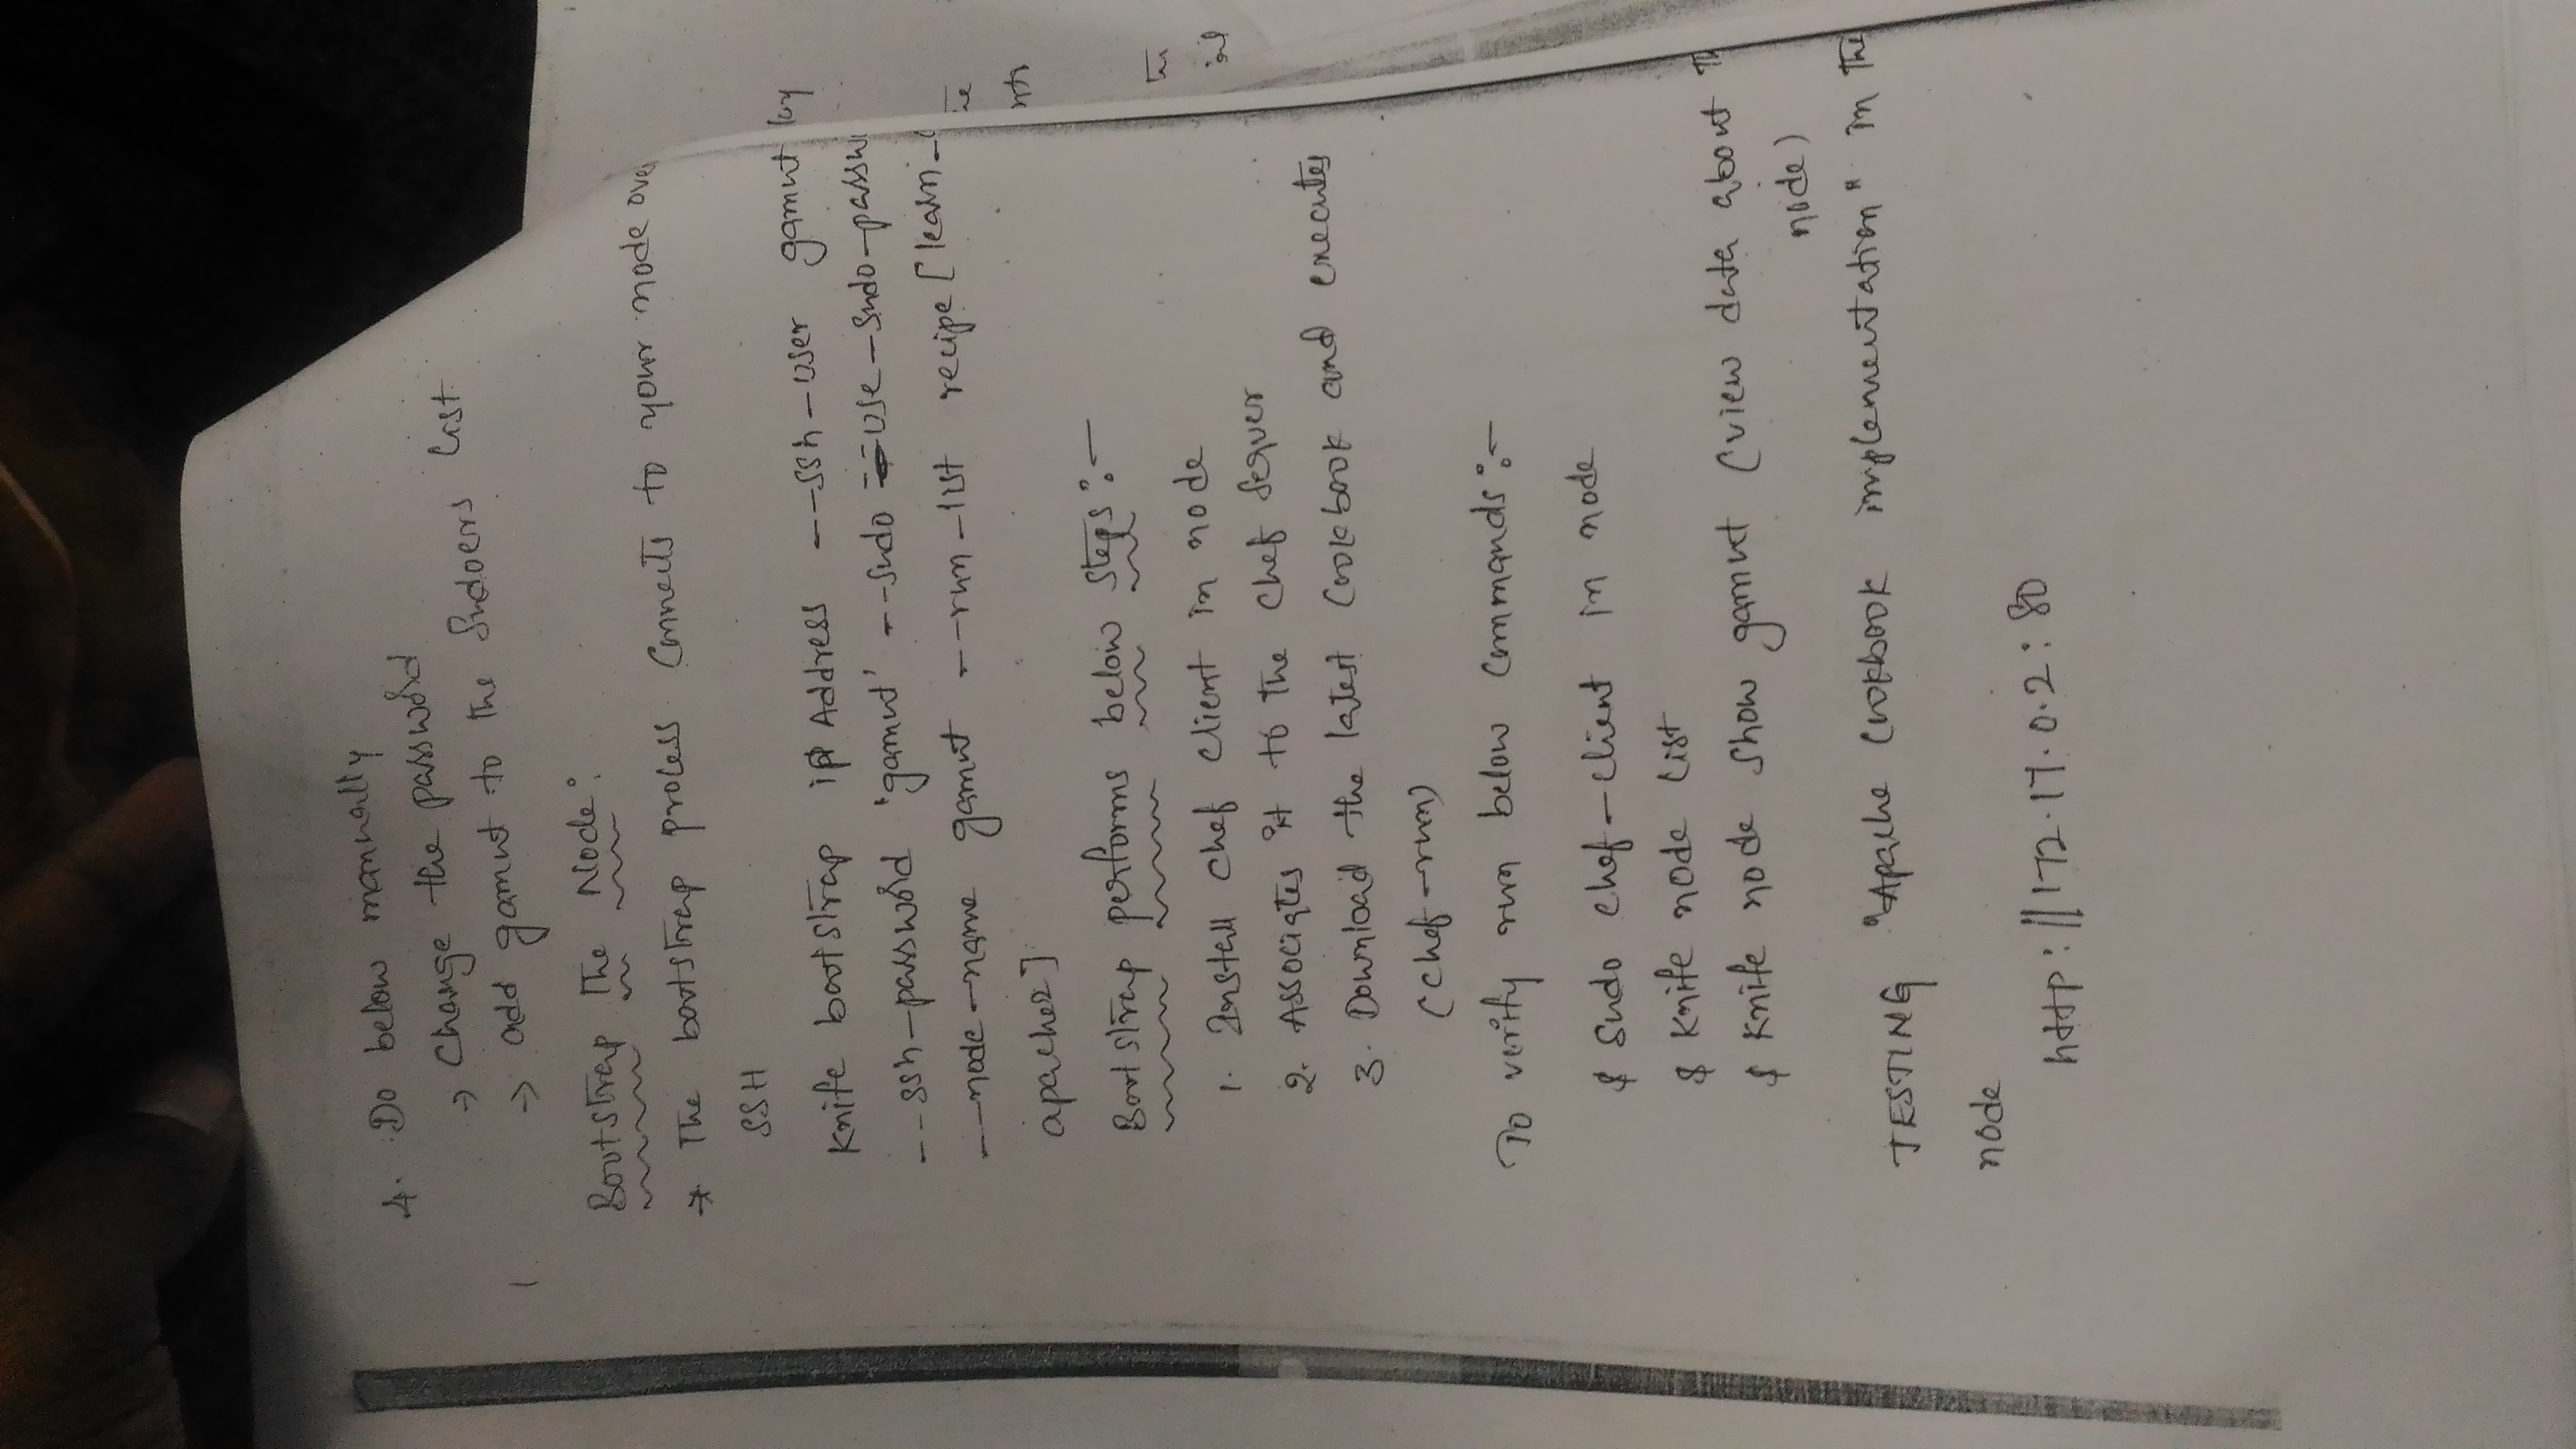 4. Do below manually
→ Change the password
→ add gamut to the Sudoers list
Bootstrap The Node:
* The bootstrap process Connects to your node ove
SSH
Knife bootstrap ip Address --ssh-user gamut
--ssh-password 'gamut' --sudo --use-sudo-passw
--node-name gamut --run-list recipe[learn-
apache2]
Bootstrap performs below steps:-
1. Install chef client in node
2. Associates it to the chef server
3. Download the latest cookbook and executes
(chef-run)
To verify run below commands:-
$ Sudo chef-client in node
$ Knife node list
$ Knife node show gamut (view data about Th
node)
TESTING "Apache Cookbook implementation" in The
node
http://172.17.0.2:80